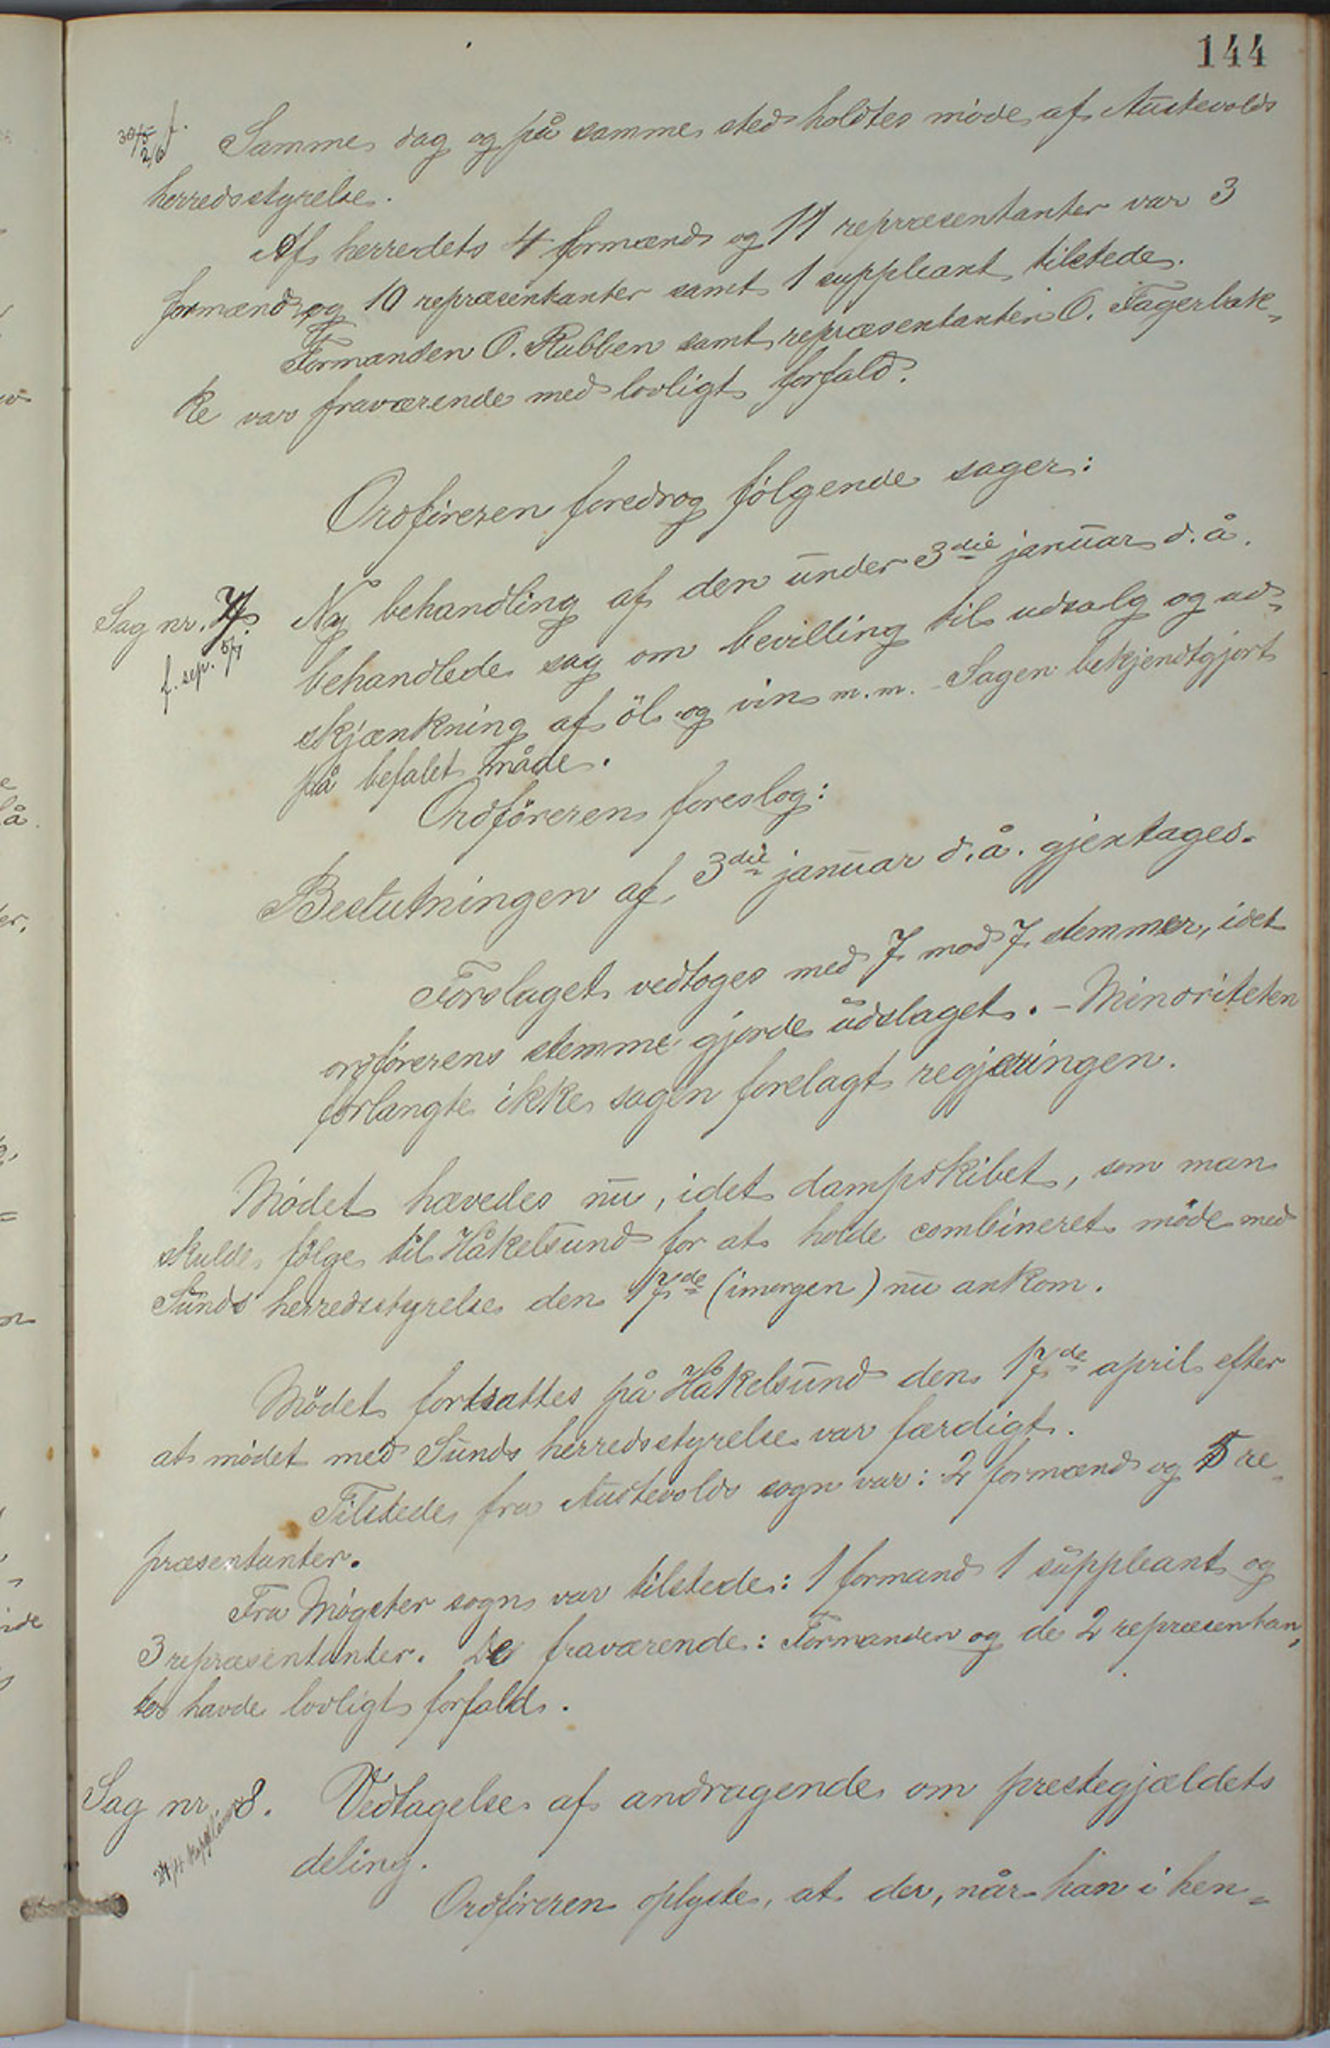 144
30/5 f.
2/6
Samme dag og på samme sted holdtes møde af Austevolds
herredsstyrelse.
Af herredets 4 formænd og 11 repræsentanter var 3
formænd og 10 repræsentanter samt 1 suppleant tilstede.
Formanden O. Rabben samt repræsentanten O. Fagerbak-
ke var fraværende med lovligt forfald.
Ordføreren foredrog følgende sager:
Sag nr. 7
f. sep. 5/7
Ny behandling af den under 3die januar d. å.
behandlede sag om bevilling til udsalg og ud-
skjænkning af öl og vin m. m. - Sagen bekjendtgjort
på befalet måde.
Ordføreren foreslog:
Beslutningen af 3die januar d. å. gjentages.
Forslaget vedtoges med 7 mod 7 stemmer, idet
ordførerens stemme gjorde udslaget. - Minoriteten
forlangte ikke sagen forelagt regjeringen.
Mødet hævedes nu, idet dampskibet, som man
skulde følge til Håkelsund for at holde combineret møde med
Sunds herredsstyrelse den 17de (imorgen) nu ankom.
Mødet fortsattes på Håkelsund den 17de april efter
at mødet med Sunds herredsstyrelse var færdigt.
Tilstede fra Austevolds sogn var: 2 formænd og 5 re-
præsentanter.
Fra Møgster sogn var tilstede: 1 formand 1 suppleant og
3 repræsentanter. De fraværende: Formanden og de 2 repræsentan-
ter havde lovligt forfald.
Sag nr. 8.
Vedtagelse af andragende om prestegjældets
deling.
Ordføreren oplyste, at der, når han i hen-